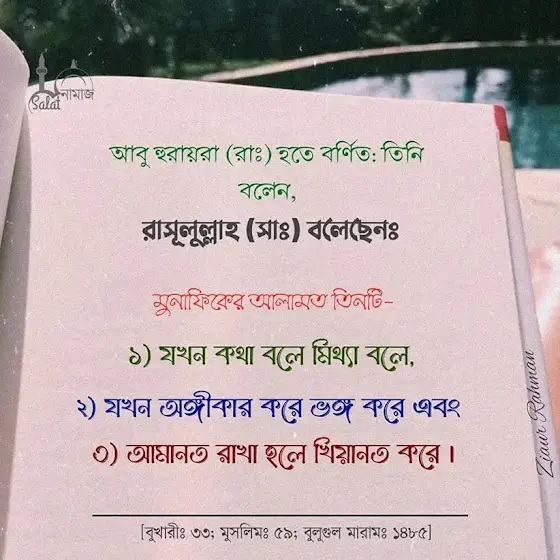 Salat নামাজ
আবু হুরায়রা (রাঃ) হতে বর্ণিত: তিনি
বলেন,
রাসূলুল্লাহ (সাঃ) বলেছেনঃ
মুনাফিকের আলামত তিনটি-
১) যখন কথা বলে মিথ্যা বলে,
২) যখন অঙ্গীকার করে ভঙ্গ করে এবং
৩) আমানত রাখা হলে খিয়ানত করে।
[বুখারীঃ ৩৩; মুসলিমঃ ৫৯; বুলুগুল মারামঃ ১৪৮৫]
Ziaur Rahman